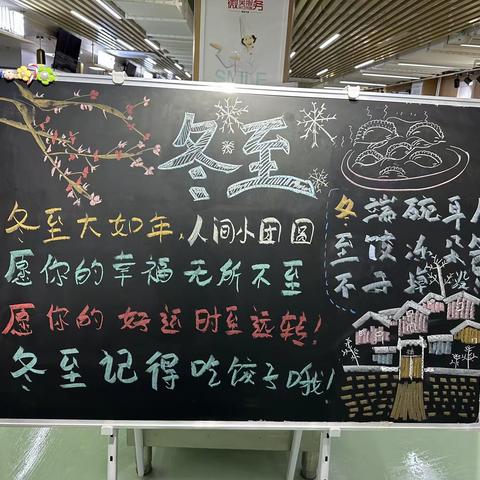 微笑服务
SMILE
冬至
冬至大如年,人间小团圆
愿你的幸福无所不至
愿你的好运时至运转!
冬至记得吃饺子哦!
冬至不
端饺子
碗冻掉
耳朵没